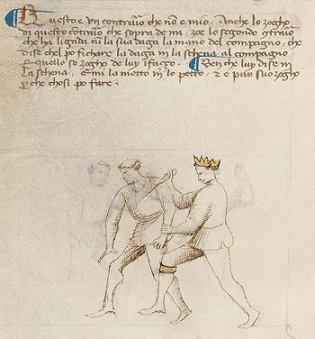 Questo e un contrario che non e mio. Anche lo zogho
di questo contrario che sopra de mi, zoe lo segondo contrario
che ha ligada cum la sua daga la mano del compagno, che
dise chel po fichare la daga in la schena al compagno
e quello so zogho de luy i fazzo. Ben che luy dise in
la schena, E mi la metto in lo petto, e pur suo zogho
per che chosi po fare.